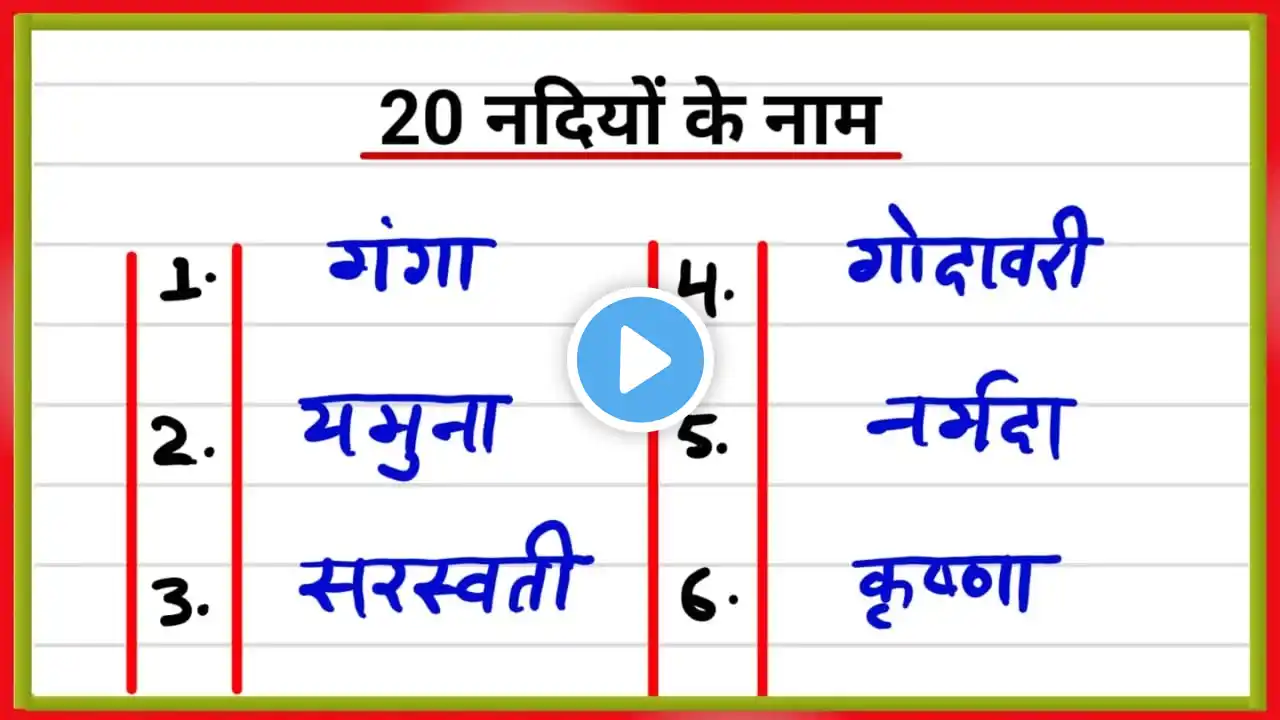 20 नदियों के नाम
1. गंगा
2. यमुना
3. सरस्वती
4. गोदावरी
5. नर्मदा
6. कृष्णा